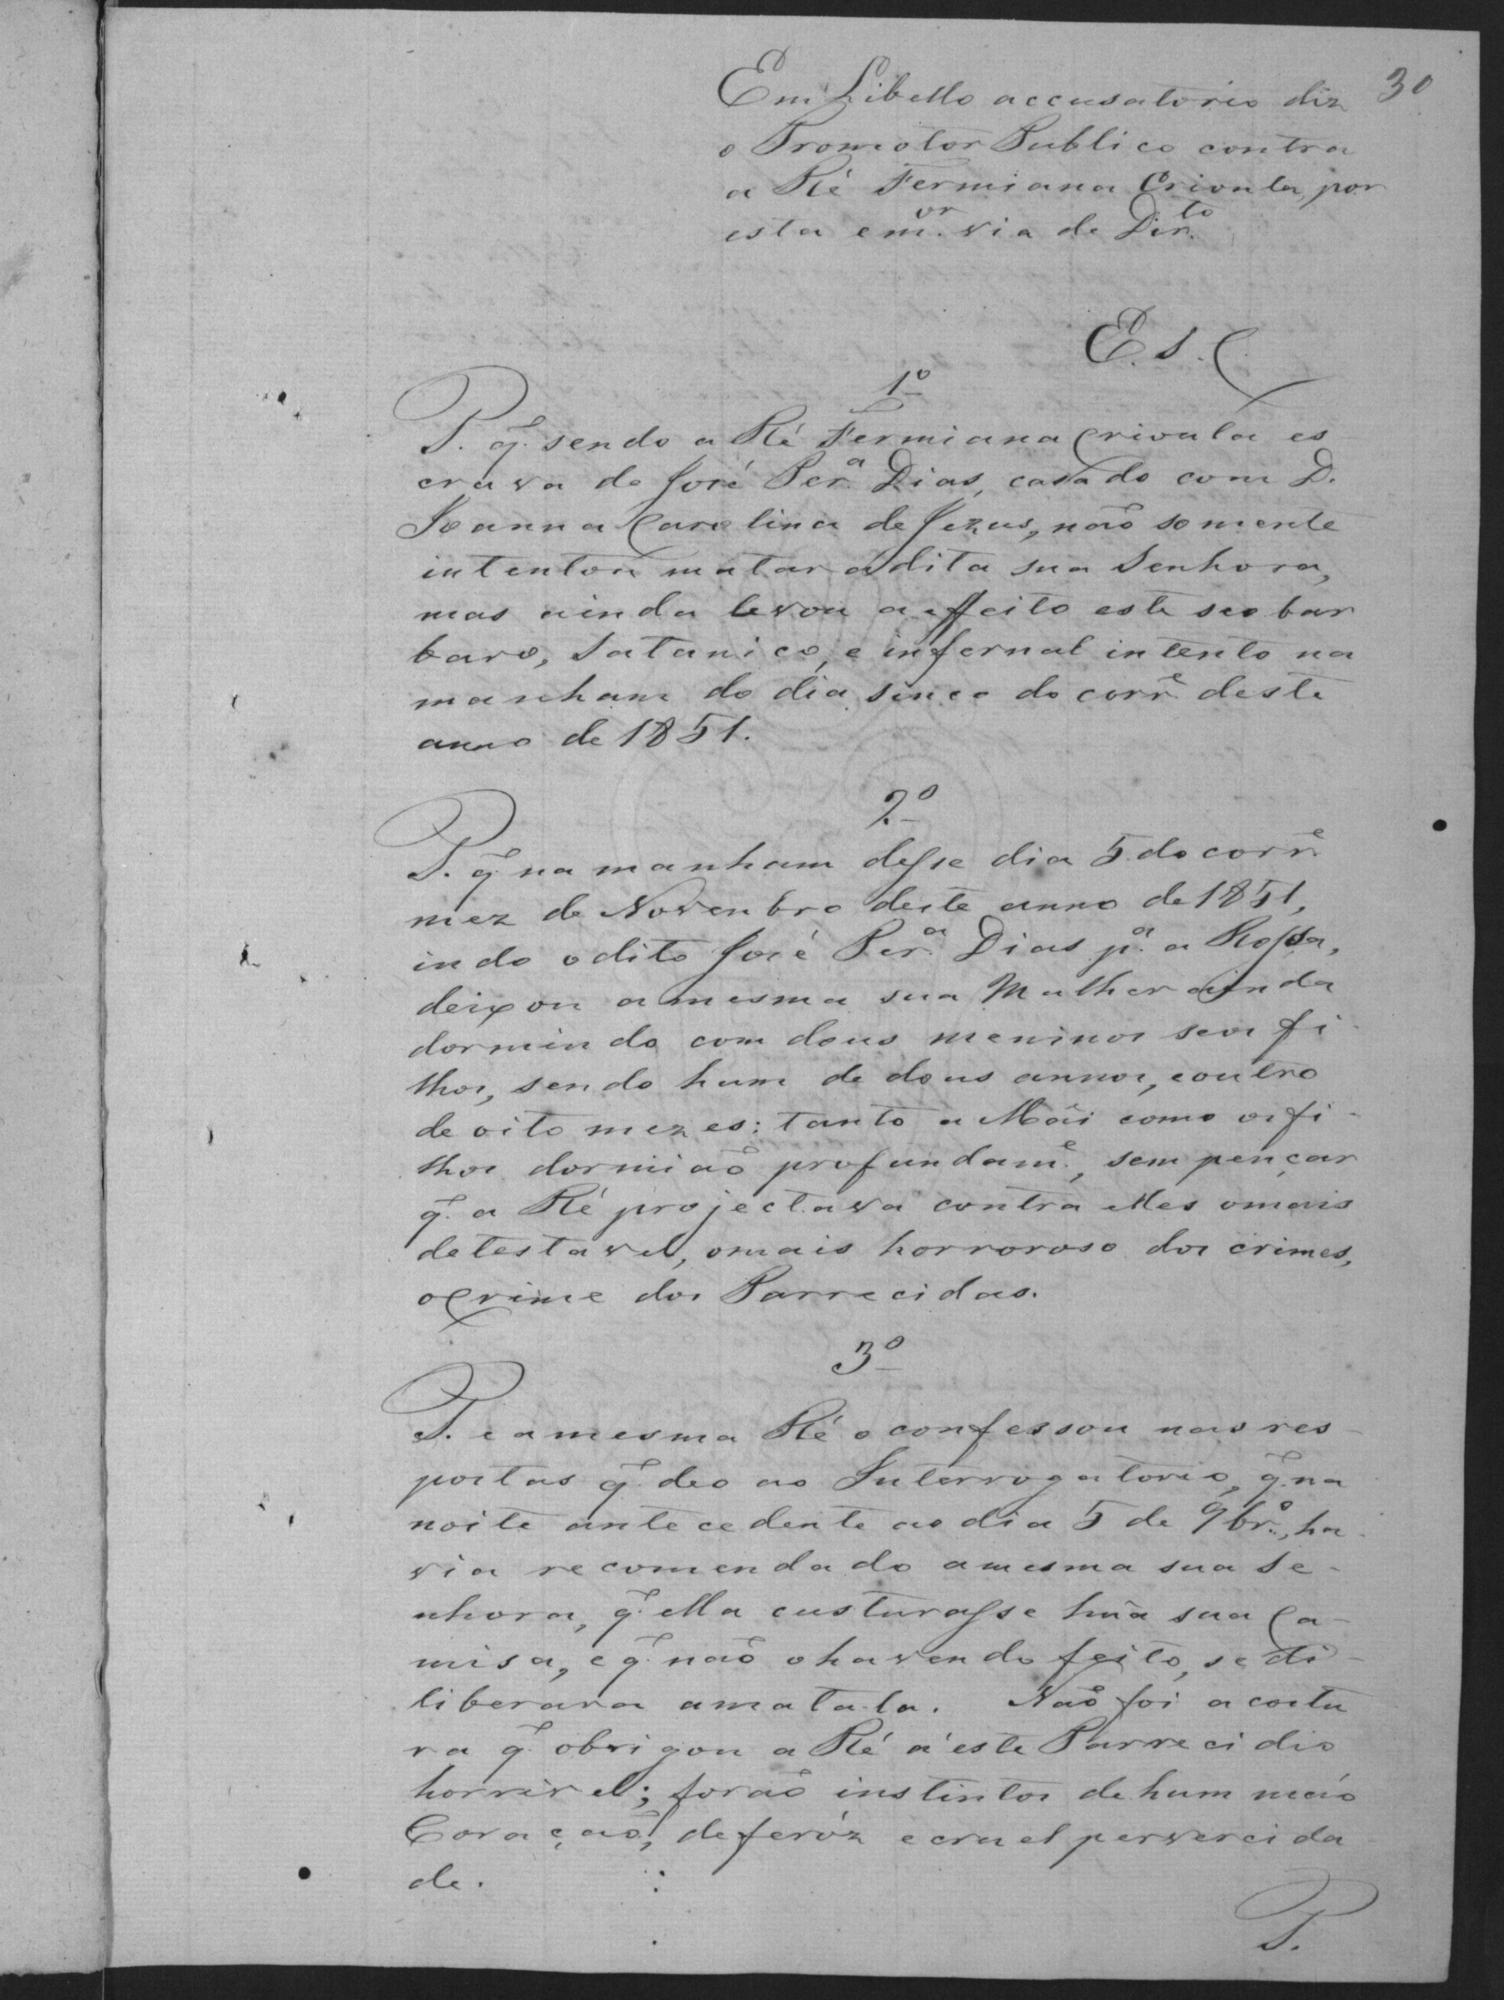 30
Em Libello accusatorio diz
o Promotor Publico contra
a Ré Fermiana Crioula, por
esta e m.or via de Dir.to
E. S. C.
1º
P. q̃. sendo a Ré Fermiana Crioula es
crava de José Per.ª Dias, casado com D.
Joanna Carolina de Jezus, naõ somente
intentou matar a dita sua Senhora,
mas ainda levou a effeito este seo bar
baro, Satanico, e infernal intento na
manham do dia sinco do corr.e deste
anno de 1851.
2º
P. q̃ na manham desse dia 5 do corr.e
mez de Novenbro deste anno de 1851,
indo o dito José Per.ª Dias p.ª a Rossa,
deixou a mesma sua Mulher ainda
dormindo com dous meninos seos fi-
lhos, sendo hum de dous annos, e outro
de oito mezes: tanto a Mãi como os fi-
lhos dormiaõ profundam.e, sem pençar
q̃. a Ré projectava contra elles o mais
detestavel, o mais horroroso dos crimes,
o Crime dos Parrecidas.
3º
P. e a mesma Ré o confessou nas res-
postas q̃. deo ao Interrogatorio, q̃. na
noite antecedente ao dia 5 de 9br.º, ha-
via recomendado a mesma sua Se-
nhora, q̃. ella custurasse hũa sua Ca-
misa, e q̃. naõ o havendo feito, se di-
liberara a matala. Naõ foi a costu
ra q̃. obrigou a Ré a' este Parrecidio
horrivel; foraõ instintos de hum máo
Coraçaõ, de feróz e cruel pervercida
de.
P.